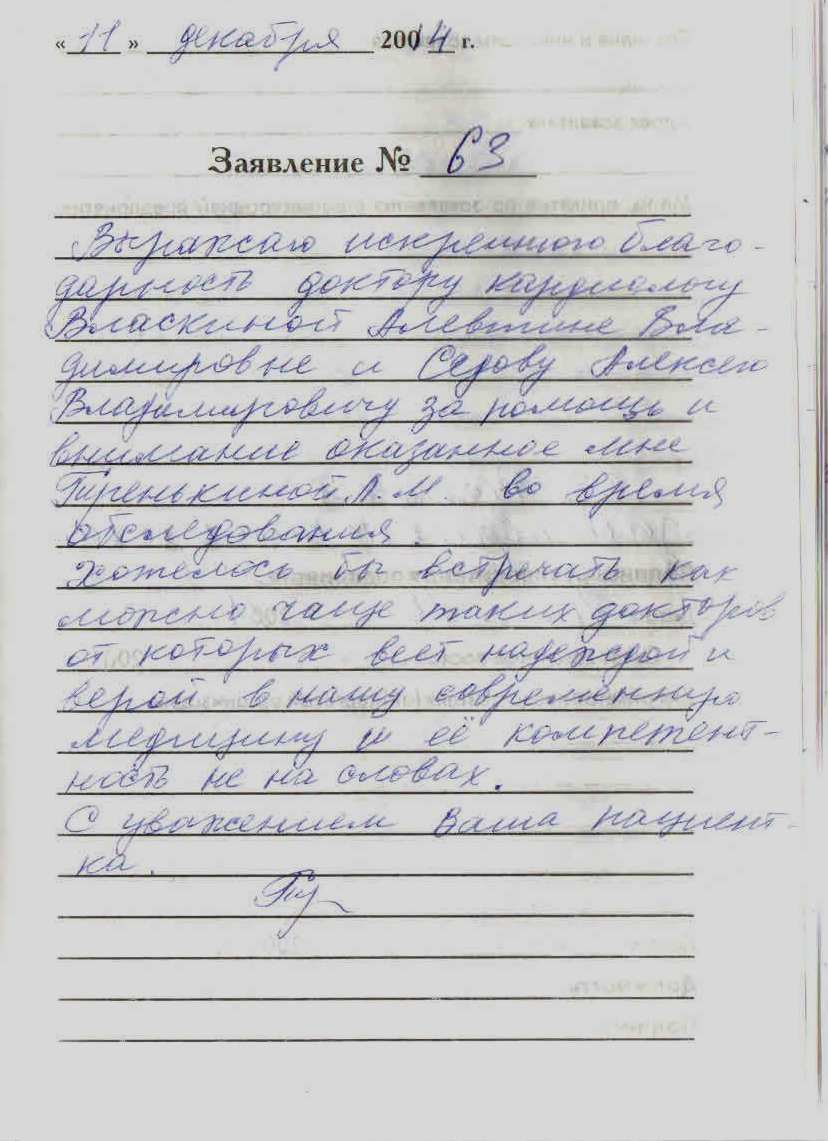 « 11 » декабря 2014 г.
Заявление № 63
Выражаю искреннюю благо-
дарность доктору кардиологу
Власкиной Алевтине Вла-
димировне и Седову Алексею
Владимировичу за помощь и
внимание оказанное мне
Пиренькиной А.М. во время
обследования.
Хотелось бы встречать как
можно чаще таких докторов
от которых веет надеждой и
верой в нашу современную
медицину и её компетент-
ность не на словах.
С уважением Ваша пациент-
ка.